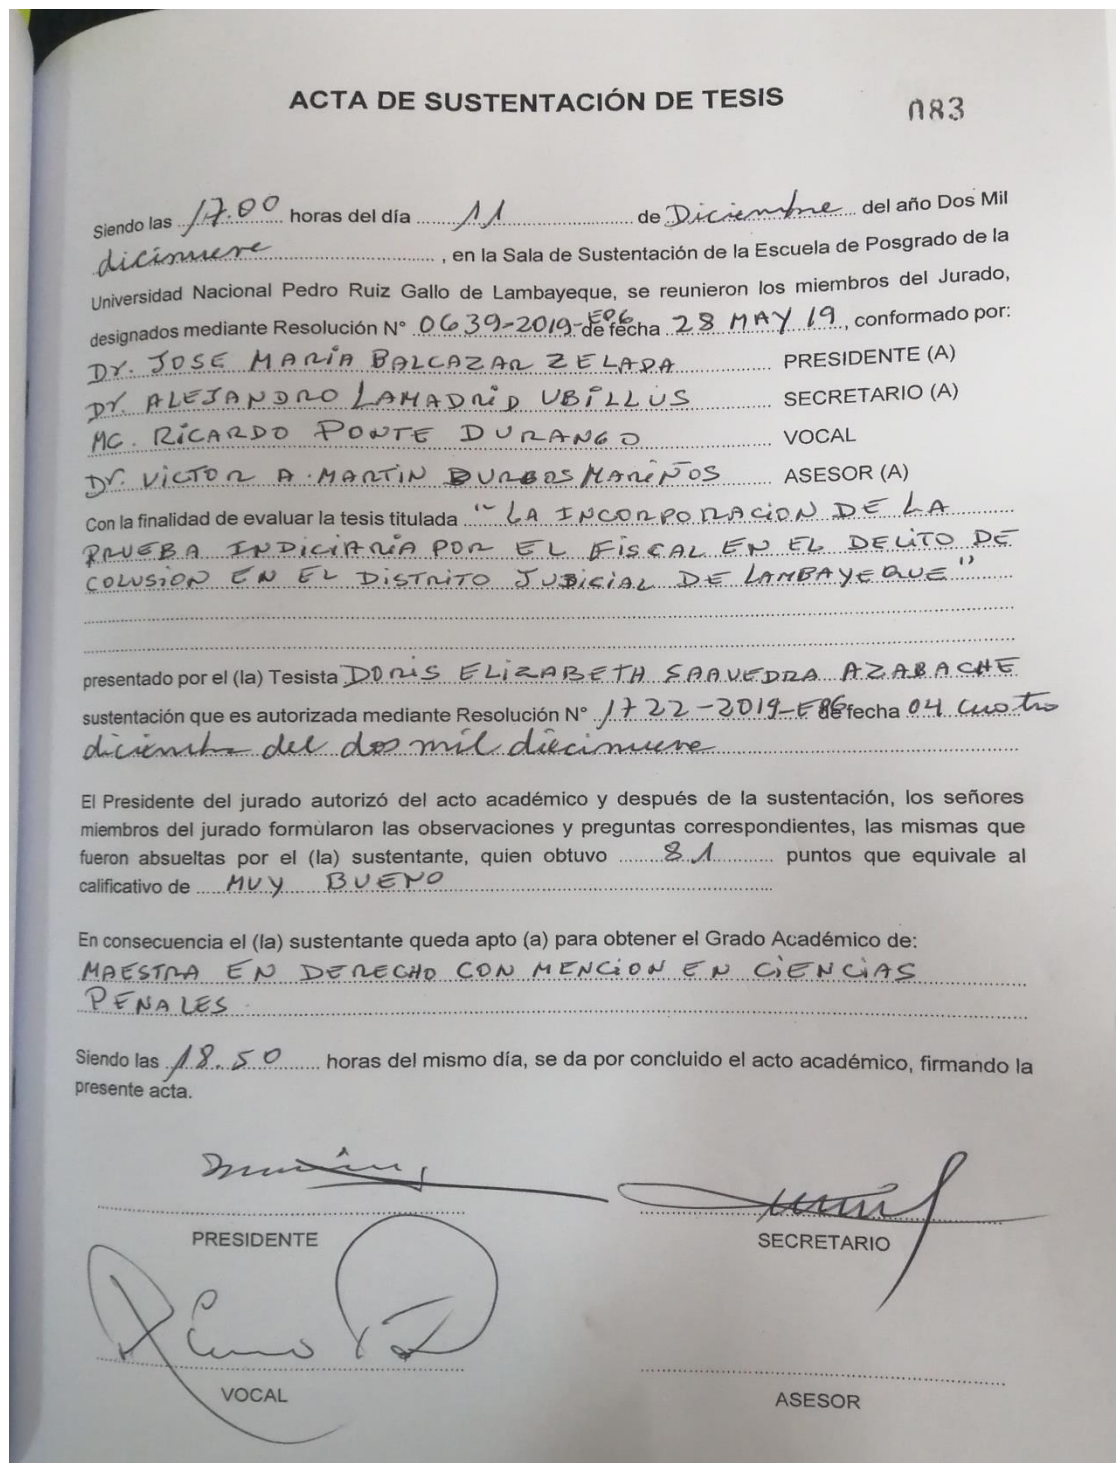 ACTA DE SUSTENTACIÓN DE TESIS
083
Siendo las 17.00 horas del día 11 de Diciembre del año Dos Mil
dicinueve, en la Sala de Sustentación de la Escuela de Posgrado de la
Universidad Nacional Pedro Ruiz Gallo de Lambayeque, se reunieron los miembros del Jurado,
designados mediante Resolución N° 0639-2019-EPG de fecha 28 MAY 19, conformado por:
Dr. JOSE MARÍA BALCAZAR ZELADA PRESIDENTE (A)
Dr. ALEJANDRO LAMADRID UBILLUS SECRETARIO (A)
MC. RICARDO PONTE DURANGO VOCAL
Dr. VICTOR A. MARTIN BURGOS MARIÑOS ASESOR (A)
Con la finalidad de evaluar la tesis titulada "LA INCORPORACION DE LA
PRUEBA INDICIARIA POR EL FISCAL EN EL DELITO DE
COLUSION EN EL DISTRITO JUDICIAL DE LAMBAYEQUE"
presentado por el (la) Tesista DORIS ELIZABETH SAAVEDRA AZABACHE
sustentación que es autorizada mediante Resolución N° 1722-2019-EPG de fecha 04 cuatro
diciembre del dos mil diecinueve
El Presidente del jurado autorizó del acto académico y después de la sustentación, los señores
miembros del jurado formularon las observaciones y preguntas correspondientes, las mismas que
fueron absueltas por el (la) sustentante, quien obtuvo 81 puntos que equivale al
calificativo de MUY BUENO
En consecuencia el (la) sustentante queda apto (a) para obtener el Grado Académico de:
MAESTRA EN DERECHO CON MENCION EN CIENCIAS
PENALES
Siendo las 18.50 horas del mismo día, se da por concluido el acto académico, firmando la
presente acta.
PRESIDENTE
SECRETARIO
VOCAL
ASESOR